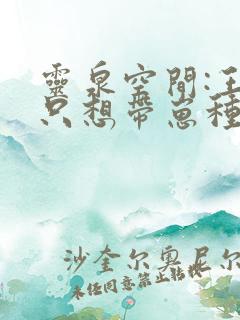 靈泉空間:王
只想帶崽種
沙奎尔奥尼尔
未经同意禁止转载